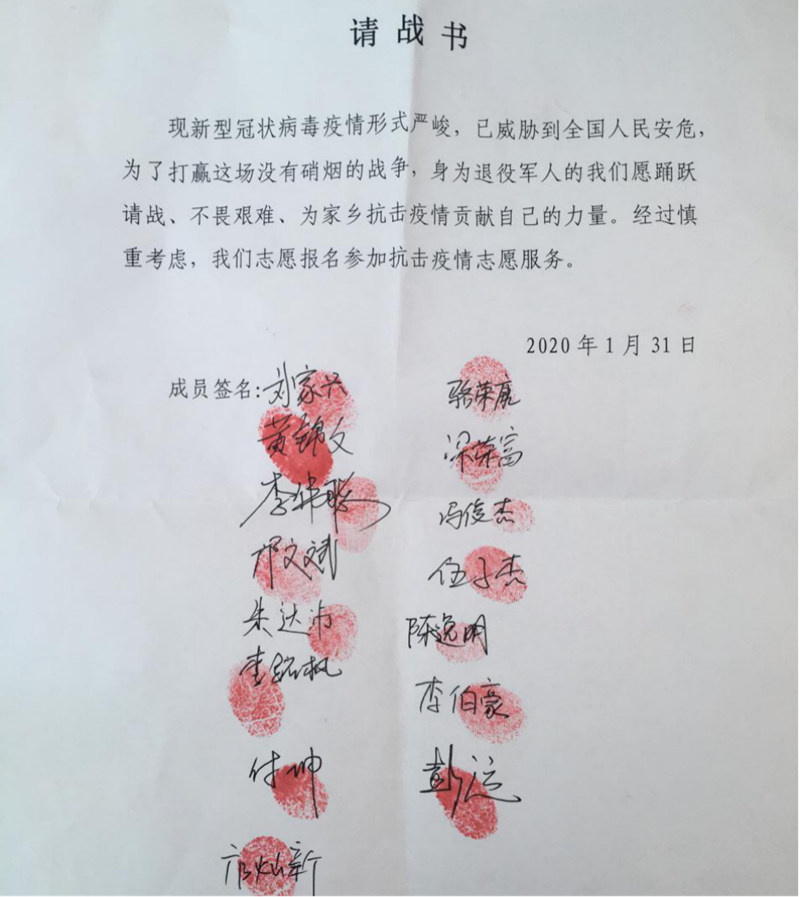 请战书
现新型冠状病毒疫情形式严峻，已威胁到全国人民安危，
为了打赢这场没有硝烟的战争，身为退役军人的我们愿踊跃
请战、不畏艰难、为家乡抗击疫情贡献自己的力量。经过慎
重考虑，我们志愿报名参加抗击疫情志愿服务。
2020年1月31日
成员签名：刘家兴
黄锦文
李华聪
邝文斌
朱达沛
付坤
骆荣展
梁荣富
冯俊杰
伍子杰
陈逸明
李伯豪
彭运